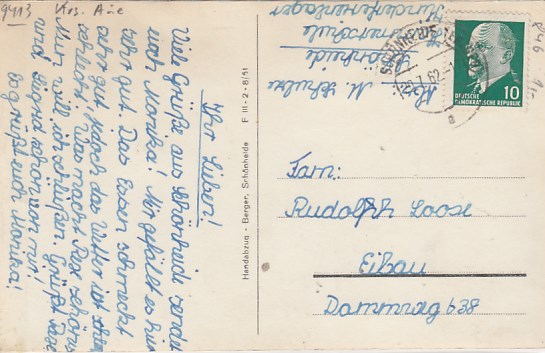 9413 Krs. Aue
Ihr Lieben!
Viele Grüße aus Schönheide sendet
euch Monika! Mir gefällt es hier
sehr gut. Das Essen schmeckt
sehr gut jedoch das Wetter ist
schlecht. Was macht
Nun will ich schließen. Grüßt
und Sigrid schon von mir!
Es grüßt euch Monika!
Handabzug - Berger, Schönheide F III - 2 - 8/51
M. Schulze
Schönheide
Kinderferienlager
SCHÖNHEIDE
.7.62
a
DEUTSCHE
DEMOKRATISCHE REPUBLIK
10
Fam:
Rudolph Loose
Eibau
Dammweg 638